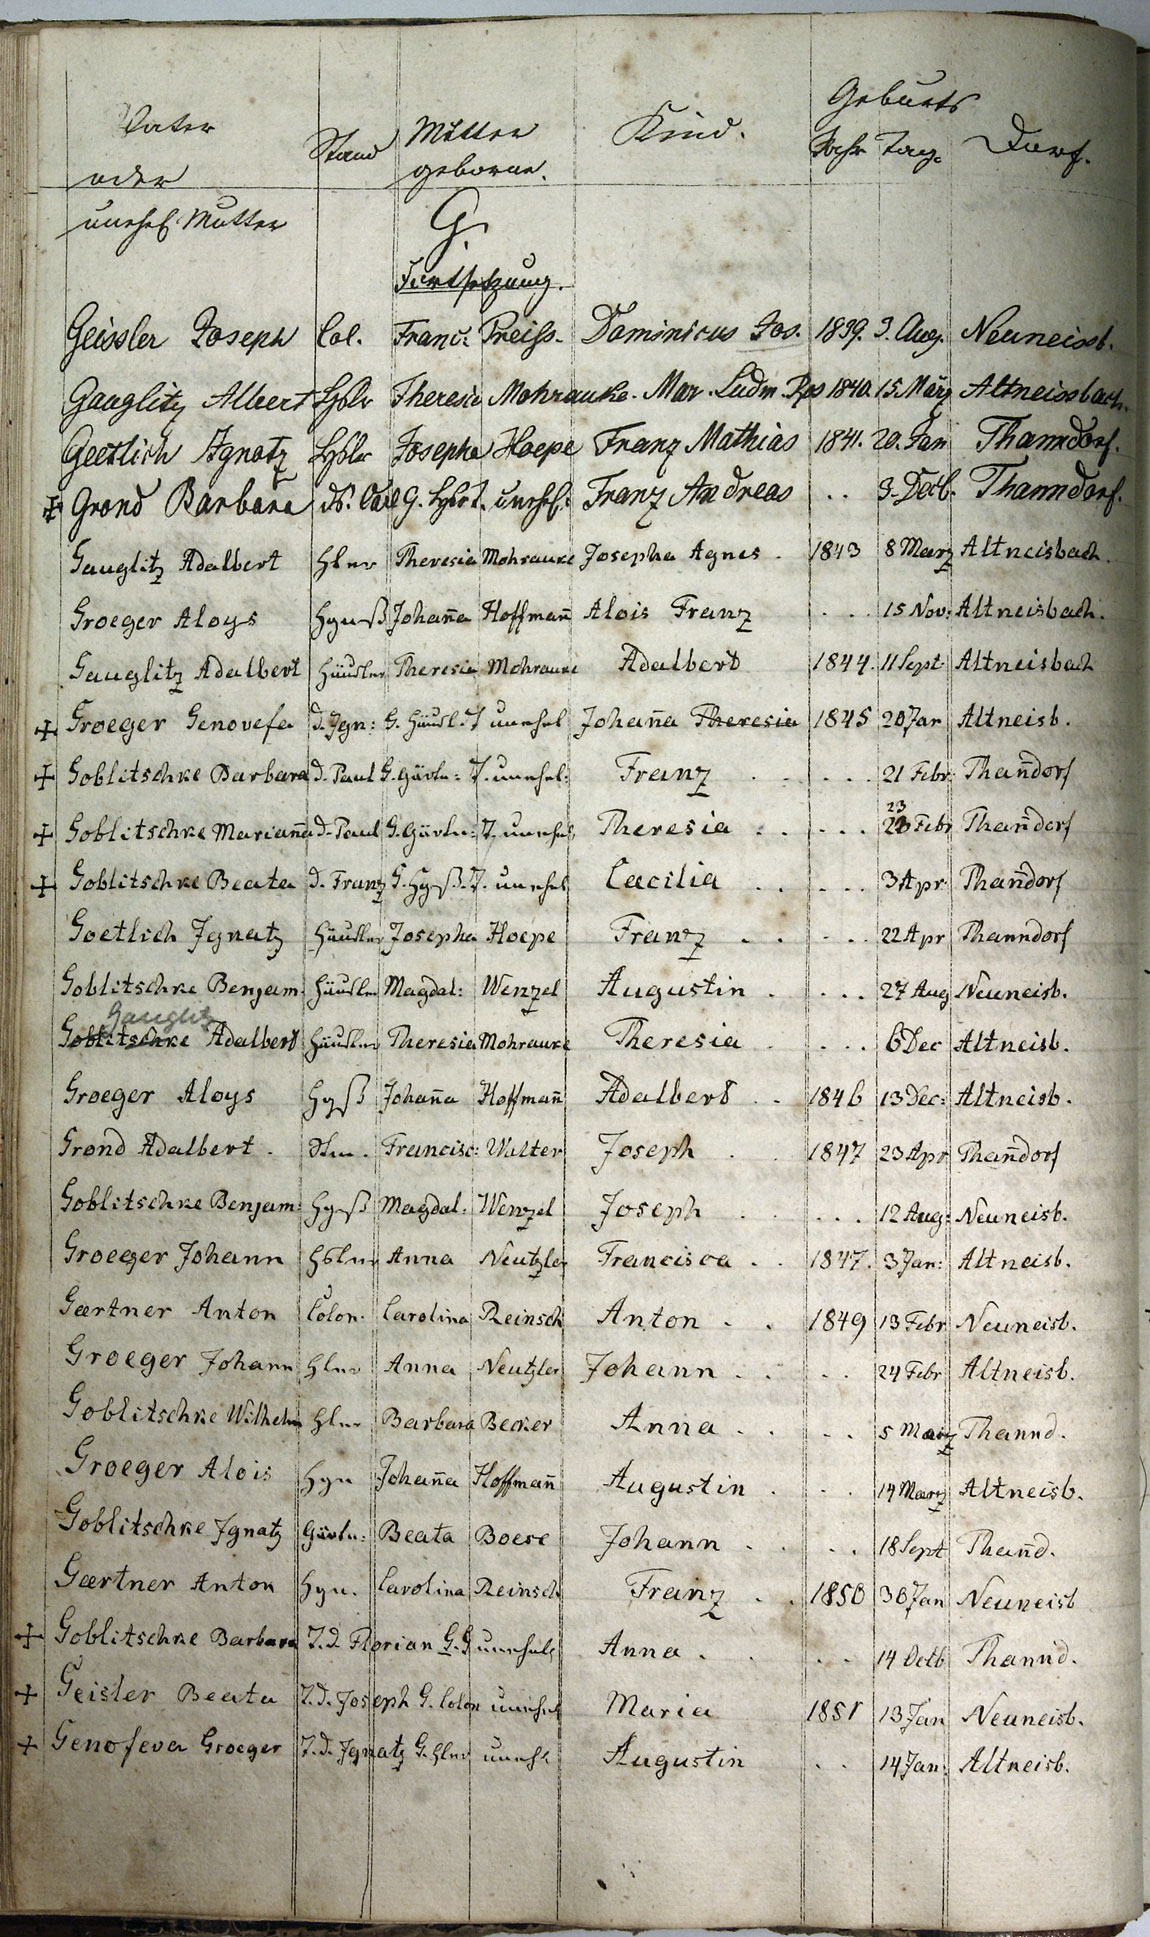 Geburts
Vater Stand Mutter Kind. Jahr Tag. Dorf.
oder geborne.
unehel. Mutter G.
Fortsetzung.
Geissler Joseph Col. Franc: Preiss. Dominicus Jos. 1839. 3. Aug. Neuneissb.
Gauglitz Albert Hslr Theresia Mohrauke. Mar. Ludm. Ros 1840. 15. März Altneissbach.
Goetlich Ignatz Hslr Josepha Hoepe Franz Mathias 1841. 20. Jan Thanndorf.
+ Grond Barbara G. unehel: Franz Andreas . . 3. Thanndorf.
Gauglitz Adalbert Hslr Theresia Mohrauke Josepha Agnes . 1843 8 Marz Altneisbach.
Groeger Aloys Johan̄a Hoffman̄ Alois Franz . . . 15 Nov: Altneisbach.
Gauglitz Adalbert Häusler Theresia Mohrauke Adalbert 1844. 11 Sept Altneisbach
+ Groeger Genovefa d. Ign: G. Häusl: T unehel Johan̄a Theresia 1845 20 Jar Altneisb.
+ Goblitschke Barbara d. Paul G. Gärtn: T. unehel: Franz . . . . . 21 Febr: Than̄dorf
+ Goblitschke Marian̄a d. Paul G. Gärtn: T. unehel Theresia . . . . . 23 Febr Than̄dorf
+ Goblitschke Beata d. Franz G. T. unehel Cacilia . . . . . 3 Apr Than̄dorf
Goetlich Ignatz Häusler Josepha Hoepe Franz . . . . . 22 Apr Thanndorf
Goblitschke Benjam: Häusler Magdal: Wenzel Augustin . . . . 27 Aug Neuneisb.
Gauglitz
Goblitschke Adalbert Häusler Theresia Mohrauke Theresia . . . . 6 Dec Altneisb.
Groeger Aloys Johan̄a Hoffman̄ Adalbert . . 1846 13 Dec: Altneisb.
Grond Adalbert . Francisc: Walter Joseph . . 1847 23 Apr Than̄dorf
Goblitschke Benjam: Magdal. Wenzel Joseph . . . . . 12 Aug: Neuneisb.
Groeger Johann Hslr Anna Neutzler Francisca . . 1847. 3 Jan: Altneisb.
Gærtner Anton Colon. Carolina Reinsch Anton . . 1849 13 Febr Neuneisb.
Groeger Johann Hslr Anna Neutzler Johann . . . . 24 Febr Altneisb.
Goblitschke Wilhelm Hslr Barbara Becker Anna . . . . 5 Marz Thannd.
Groeger Alois Johan̄a Hoffman̄ Augustin . . . 14 Marz Altneisb.
Goblitschke Ignatz Gärtn: Beata Boese Johann . . . . 18 Sept Than̄d.
Gærtner Anton Carolina Reinsch Franz . . 1850 30 Jan Neuneisb
+ Goblitschke Barbara T. d. Florian G. G unehel Anna . . . . 14 Octb Thannd.
+ Geisler Beata T. d. Joseph G. Colon unehel Maria 1851 13 Jan Neuneisb.
+ Genofeva Groeger T. d. Ignatz G. Hslr unehl Augustin . . 14 Jan: Altneisb.